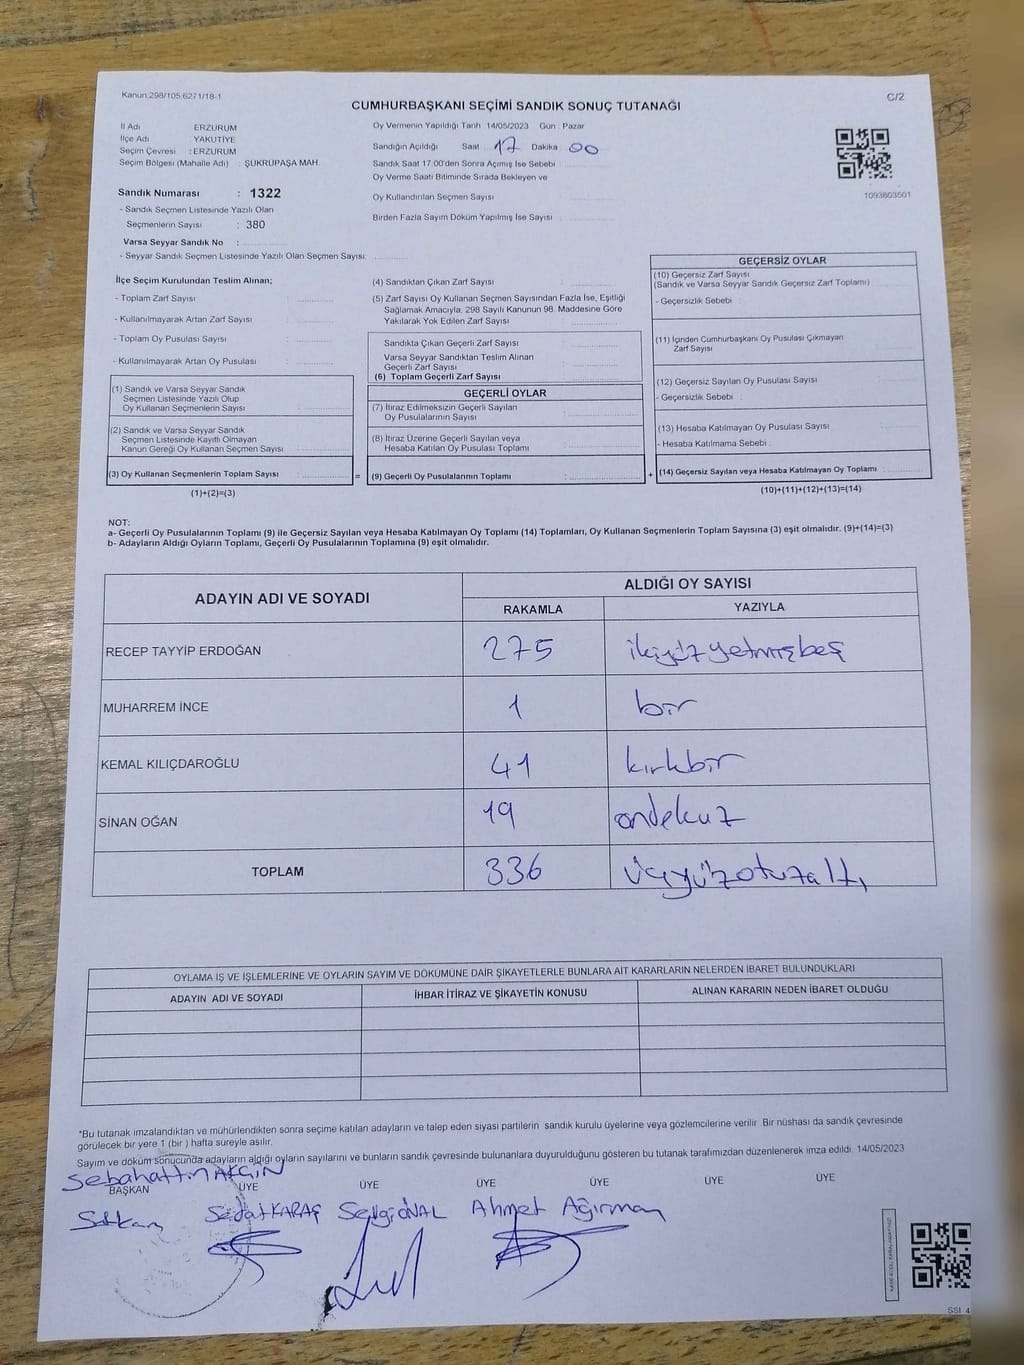 Kanun:298/105,6271/18-1
CUMHURBAŞKANI SEÇİMİ SANDIK SONUÇ TUTANAĞI
C/2
İl Adı ERZURUM
İlçe Adı : YAKUTİYE
Seçim Çevresi : ERZURUM
Seçim Bölgesi (Mahalle Adı) : ŞÜKRÜPAŞA MAH.
Sandık Numarası : 1322
- Sandık Seçmen Listesinde Yazılı Olan
Seçmenlerin Sayısı : 380
Varsa Seyyar Sandık No :
- Seyyar Sandık Seçmen Listesinde Yazılı Olan Seçmen Sayısı:
Oy Vermenin Yapıldığı Tarih 14/05/2023 Gün : Pazar
Sandığın Açıldığı Saat 17 Dakika 00
Sandık Saat 17.00'den Sonra Açılmış İse Sebebi
Oy Verme Saati Bitiminde Sırada Bekleyen ve
Oy Kullandırılan Seçmen Sayısı
Birden Fazla Sayım Döküm Yapılmış İse Sayısı
1093803501
İlçe Seçim Kurulundan Teslim Alınan;
- Toplam Zarf Sayısı :
- Kullanılmayarak Artan Zarf Sayısı :
- Toplam Oy Pusulası Sayısı :
- Kullanılmayarak Artan Oy Pusulası :
(1) Sandık ve Varsa Seyyar Sandık
Seçmen Listesinde Yazılı Olup
Oy Kullanan Seçmenlerin Sayısı :
(2) Sandık ve Varsa Seyyar Sandık
Seçmen Listesinde Kayıtlı Olmayan
Kanun Gereği Oy Kullanan Seçmen Sayısı :
(3) Oy Kullanan Seçmenlerin Toplam Sayısı :
(1)+(2)=(3)
(4) Sandıktan Çıkan Zarf Sayısı :
(5) Zarf Sayısı Oy Kullanan Seçmen Sayısından Fazla İse, Eşitliği
Sağlamak Amacıyla, 298 Sayılı Kanunun 98. Maddesine Göre
Yakılarak Yok Edilen Zarf Sayısı :
Sandıkta Çıkan Geçerli Zarf Sayısı :
Varsa Seyyar Sandıktan Teslim Alınan
Geçerli Zarf Sayısı :
(6) Toplam Geçerli Zarf Sayısı
GEÇERLİ OYLAR
(7) İtiraz Edilmeksizin Geçerli Sayılan
Oy Pusulalarının Sayısı :
(8) İtiraz Üzerine Geçerli Sayılan veya
Hesaba Katılan Oy Pusulası Toplamı :
=
(9) Geçerli Oy Pusulalarının Toplamı :
+
GEÇERSİZ OYLAR
(10) Geçersiz Zarf Sayısı
(Sandık ve Varsa Seyyar Sandık Geçersiz Zarf Toplamı)
- Geçersizlik Sebebi :
(11) İçinden Cumhurbaşkanı Oy Pusulası Çıkmayan
Zarf Sayısı
(12) Geçersiz Sayılan Oy Pusulası Sayısı
- Geçersizlik Sebebi :
(13) Hesaba Katılmayan Oy Pusulası Sayısı
- Hesaba Katılmama Sebebi :
(14) Geçersiz Sayılan veya Hesaba Katılmayan Oy Toplamı :
(10)+(11)+(12)+(13)=(14)
NOT:
a- Geçerli Oy Pusulalarının Toplamı (9) ile Geçersiz Sayılan veya Hesaba Katılmayan Oy Toplamı (14) Toplamları, Oy Kullanan Seçmenlerin Toplam Sayısına (3) eşit olmalıdır. (9)+(14)=(3)
b- Adayların Aldığı Oyların Toplamı, Geçerli Oy Pusulalarının Toplamına (9) eşit olmalıdır.
ADAYIN ADI VE SOYADI
ALDIĞI OY SAYISI
RAKAMLA YAZIYLA
RECEP TAYYİP ERDOĞAN 275 ikiyüzyetmişbeş
MUHARREM İNCE 1 bir
KEMAL KILIÇDAROĞLU 41 kırkbir
SİNAN OĞAN 19 ondokuz
TOPLAM 336 üçyüzotuzaltı
OYLAMA İŞ VE İŞLEMLERİNE VE OYLARIN SAYIM VE DÖKÜMÜNE DAİR ŞİKAYETLERLE BUNLARA AİT KARARLARIN NELERDEN İBARET BULUNDUKLARI
ADAYIN ADI VE SOYADI İHBAR İTİRAZ VE ŞİKAYETİN KONUSU ALINAN KARARIN NEDEN İBARET OLDUĞU
*Bu tutanak imzalandıktan ve mühürlendikten sonra seçime katılan adayların ve talep eden siyasi partilerin sandık kurulu üyelerine veya gözlemcilerine verilir. Bir nüshası da sandık çevresinde
görülecek bir yere 1 (bir ) hafta süreyle asılır.
Sayım ve döküm sonucunda adayların aldığı oyların sayılarını ve bunların sandık çevresinde bulunanlara duyurulduğunu gösteren bu tutanak tarafımızdan düzenlenerek imza edildi. 14/05/2023
Sebahattin AKGİN
BAŞKAN ÜYE ÜYE ÜYE ÜYE ÜYE ÜYE
Sedat KARAŞ Sevgi ÖNAL Ahmet Ağırman
SSI 4